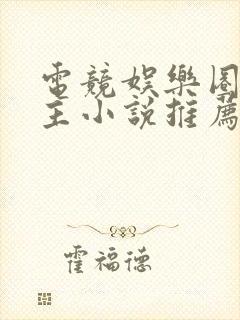 電競娛樂圈
主小說推薦
霍福德